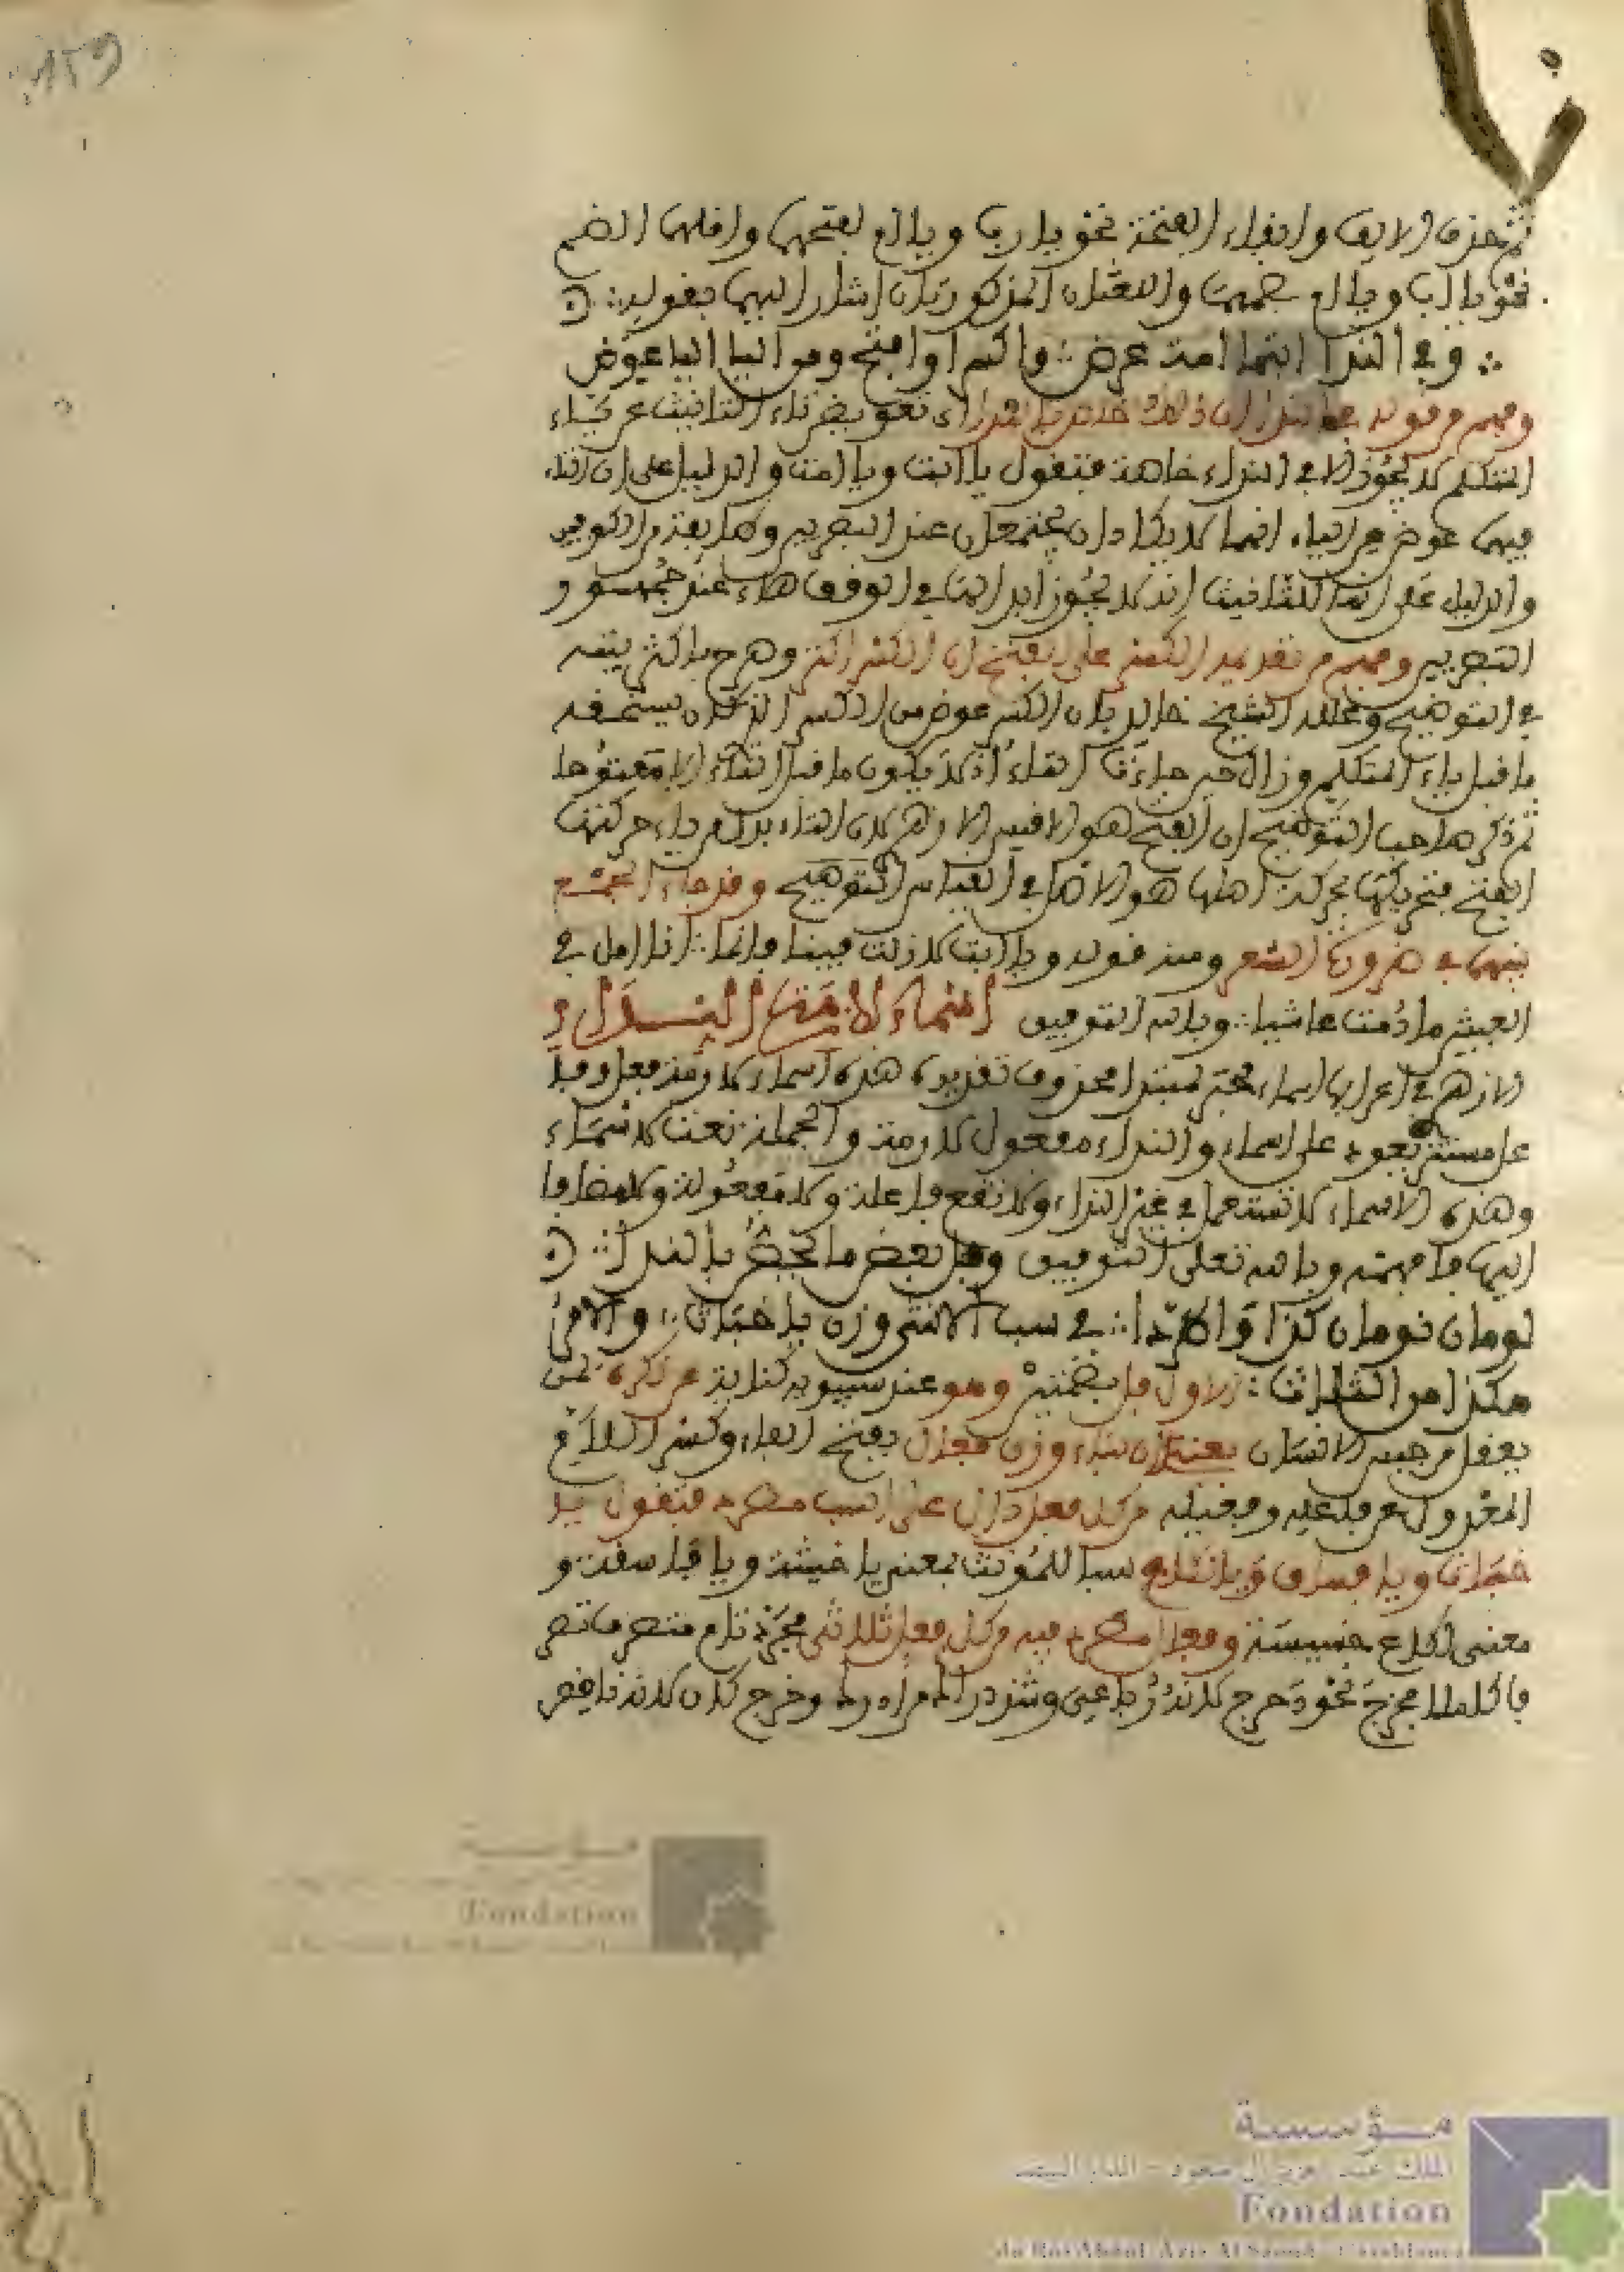 ثم حذف الالف وابقاء الفتحة نحو يا رب ويا ام بفتحهما واصلهما الضم
نحو يا اب ويا ام بضمهما واللغتان المذكورتان اشار اليهما بقوله
وفي الندا ابت امت عرض واكسر او افتح ومن اليا التا عوض
وفهم من قوله وفي الندا ان ذلك خاص بالندا اي تعويض تاء التانيث عن ياء
المتكلم لا يجوز الا في النداء خاصة فتقول يا ابت ويا امت والدليل على ان التاء
فيهما عوض من الياء انهما لا يكادان يجتمعان عند البصريين وكما بعد من الكوفيين
والدليل على انها للتانيث انه لا يجوز ابدال التا في الوقف هاء عند جمهور
البصريين وفهم من تقديمه الكسر على الفتح ان الكسر اكثر وصرح باكثريته
في التوضيح وعلله الشيخ خالد بان الكسر عوض من الكسر الذي كان يستحقه
ما قبل ياء المتكلم وزال حين جاءت التاء اذ لا يكون ما قبل التاء الا مفتوحا
ثم ذكر صاحب التوضيح ان الفتح هو الاقيس الازهري لان التاء بدل من ياء حركتها
الفتح فتحريكها بحركة اصلها هو الاصل في القياس التوضيح وقد جاء الجمع
بينهما في ضرورة الشعر ومنه قوله ويا ابتا لا زلت فينا فانما لنا امل في
العيش ما دمت عائشا وبالله التوفيق اسماء لازمت النداء و
الازهري اعرابها اسماء خبر لمبتدا محذوف تقديره هذه اسماء لازمت فعل وفا
عل مستتر يعود على اسماء والنداء مفعول لازمت والجملة نعت لاسماء
وهذه الاسماء لا تستعمل في غير النداء ولا تقع فاعلة ولا مفعولة ولا مضافا
اليها فافهمه وبالله تعلى التوفيق وفل بعض ما يخص بالندا
لومان نومان كذا واطردا في سب الانثى وزن يا خباث والامر
هكذا من الثلاث الاول فل بضمتين وهو عند سيبويه كناية عن نكرة لمن
يعقل من جنس الانسان وزن فعال بفتح الفاء وكسر اللام
المعدول عن فاعلة وفعيلة من كل فعل دال على السب مطرد فتقول يا
خباث ويا فساق ويا لكاع سبا للمؤنث بمعنى يا خبيثة ويا فاسقة و
معنى لكاع خسيسة وفعال مطرد فيه من كل فعل ثلاثي مجرد تام متصرف تصر
فا كاملا فخرج نحو دحرج لانه رباعي وشذ دراك من ادرك وخرج كان لانه ناقص
مؤسسة
الملك عبد العزيز آل سعود - الدار البيضاء
Fondation
du Roi Abdul-Aziz Al Saoud - Casablanca